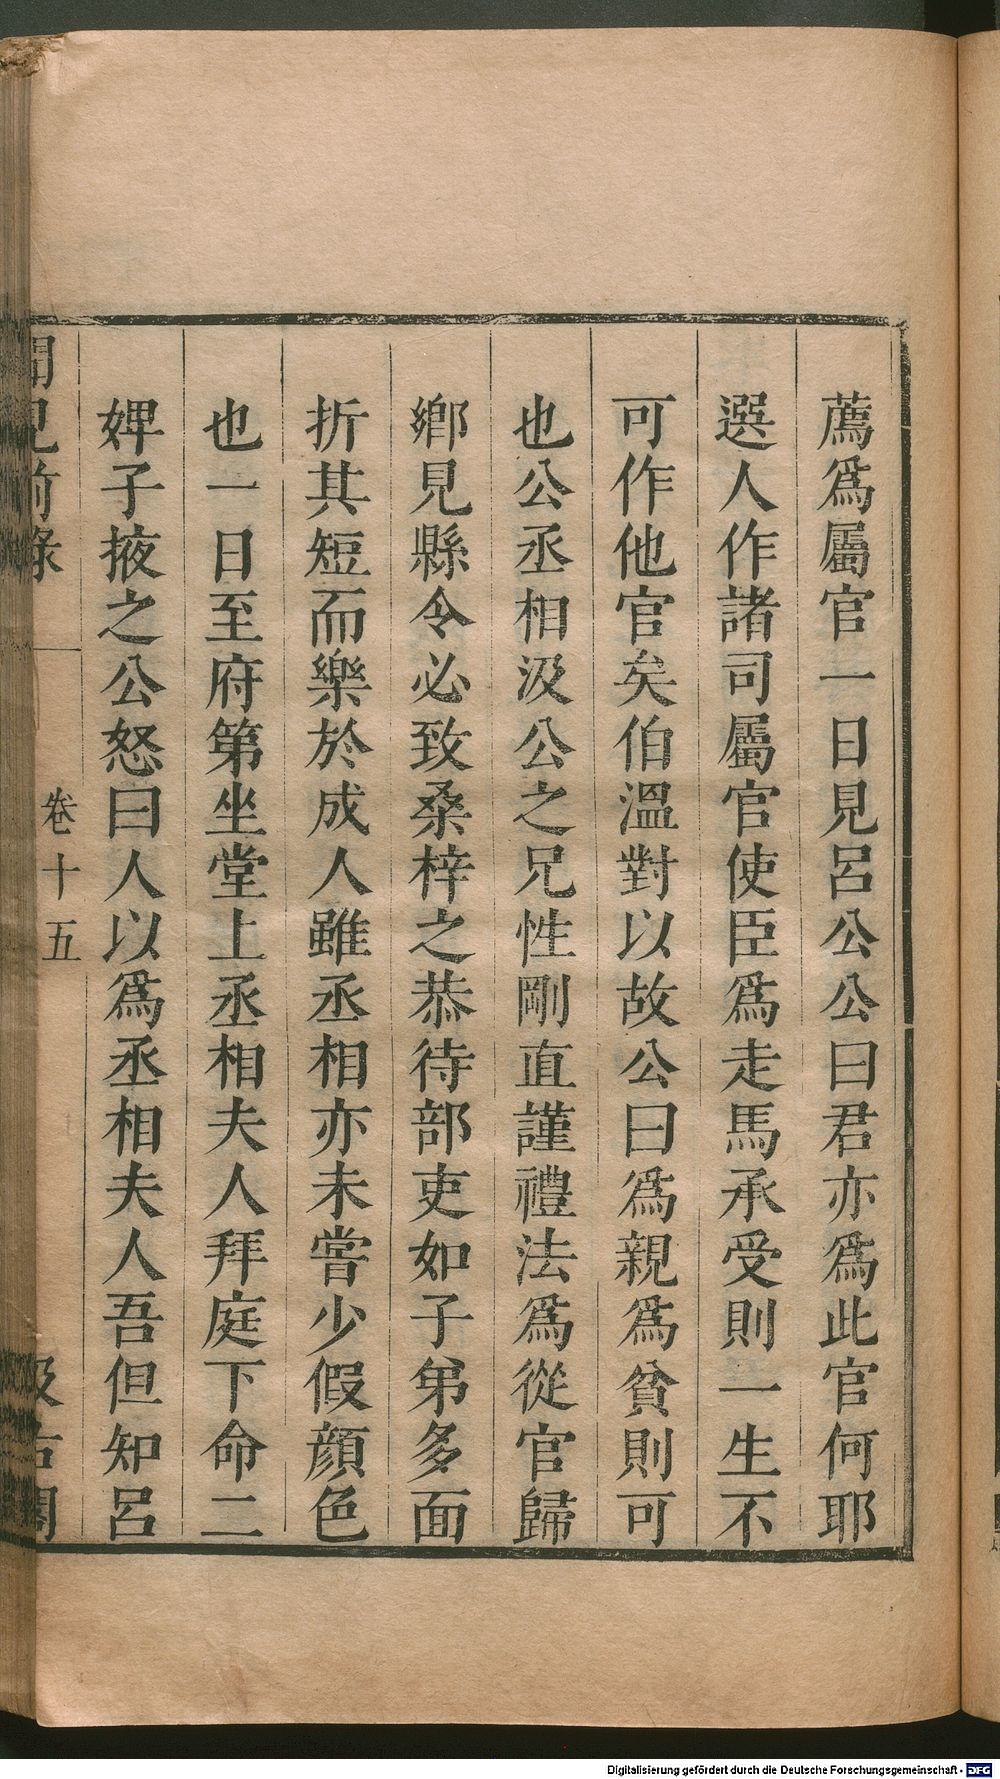 薦爲屬官一日見呂公公曰君亦爲此官何耶
選人作諸司屬官使臣爲走馬承受則一生不
可作他官矣伯溫對以故公曰爲親爲貧則可
也公丞相汲公之兄性剛直謹禮法爲從官歸
鄉見縣令必致桑梓之恭待部吏如子弟多面
折其短而樂於成人雖丞相亦未嘗少假顏色
也一日至府第坐堂上丞相夫人拜庭下命二
婢子掖之公怒曰人以爲丞相夫人吾但知呂
聞見前錄
卷十五
汲古閣
Digitalisierung gefördert durch die Deutsche Forschungsgemeinschaft - DFG